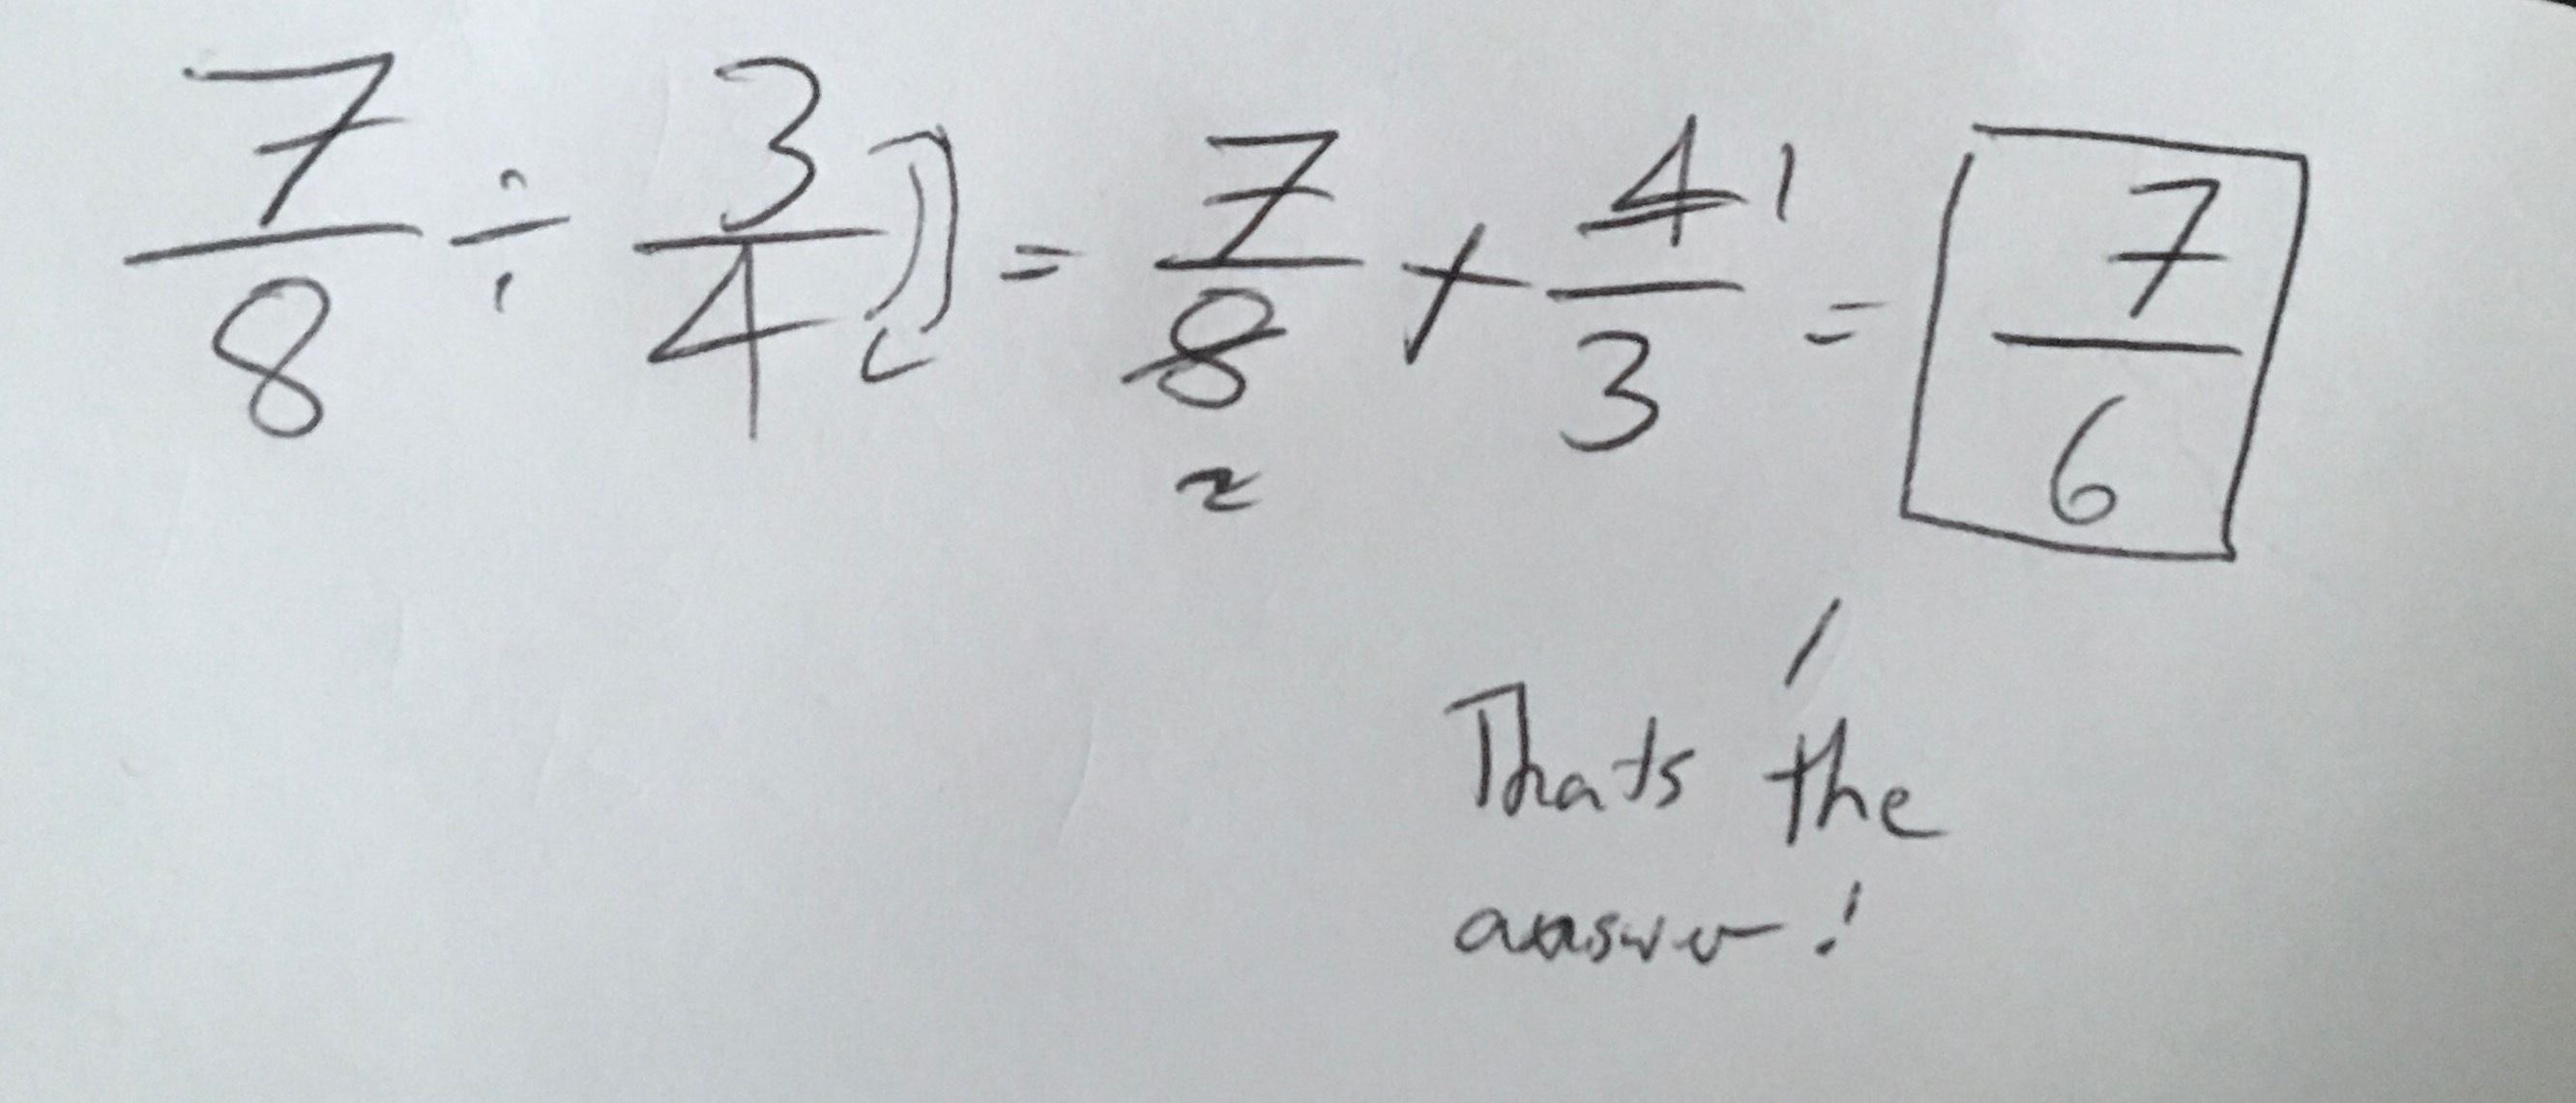 7/8 ÷ 3/4 = 7/8 2 + 4/3 1 = 7/6
Thats the
answer!